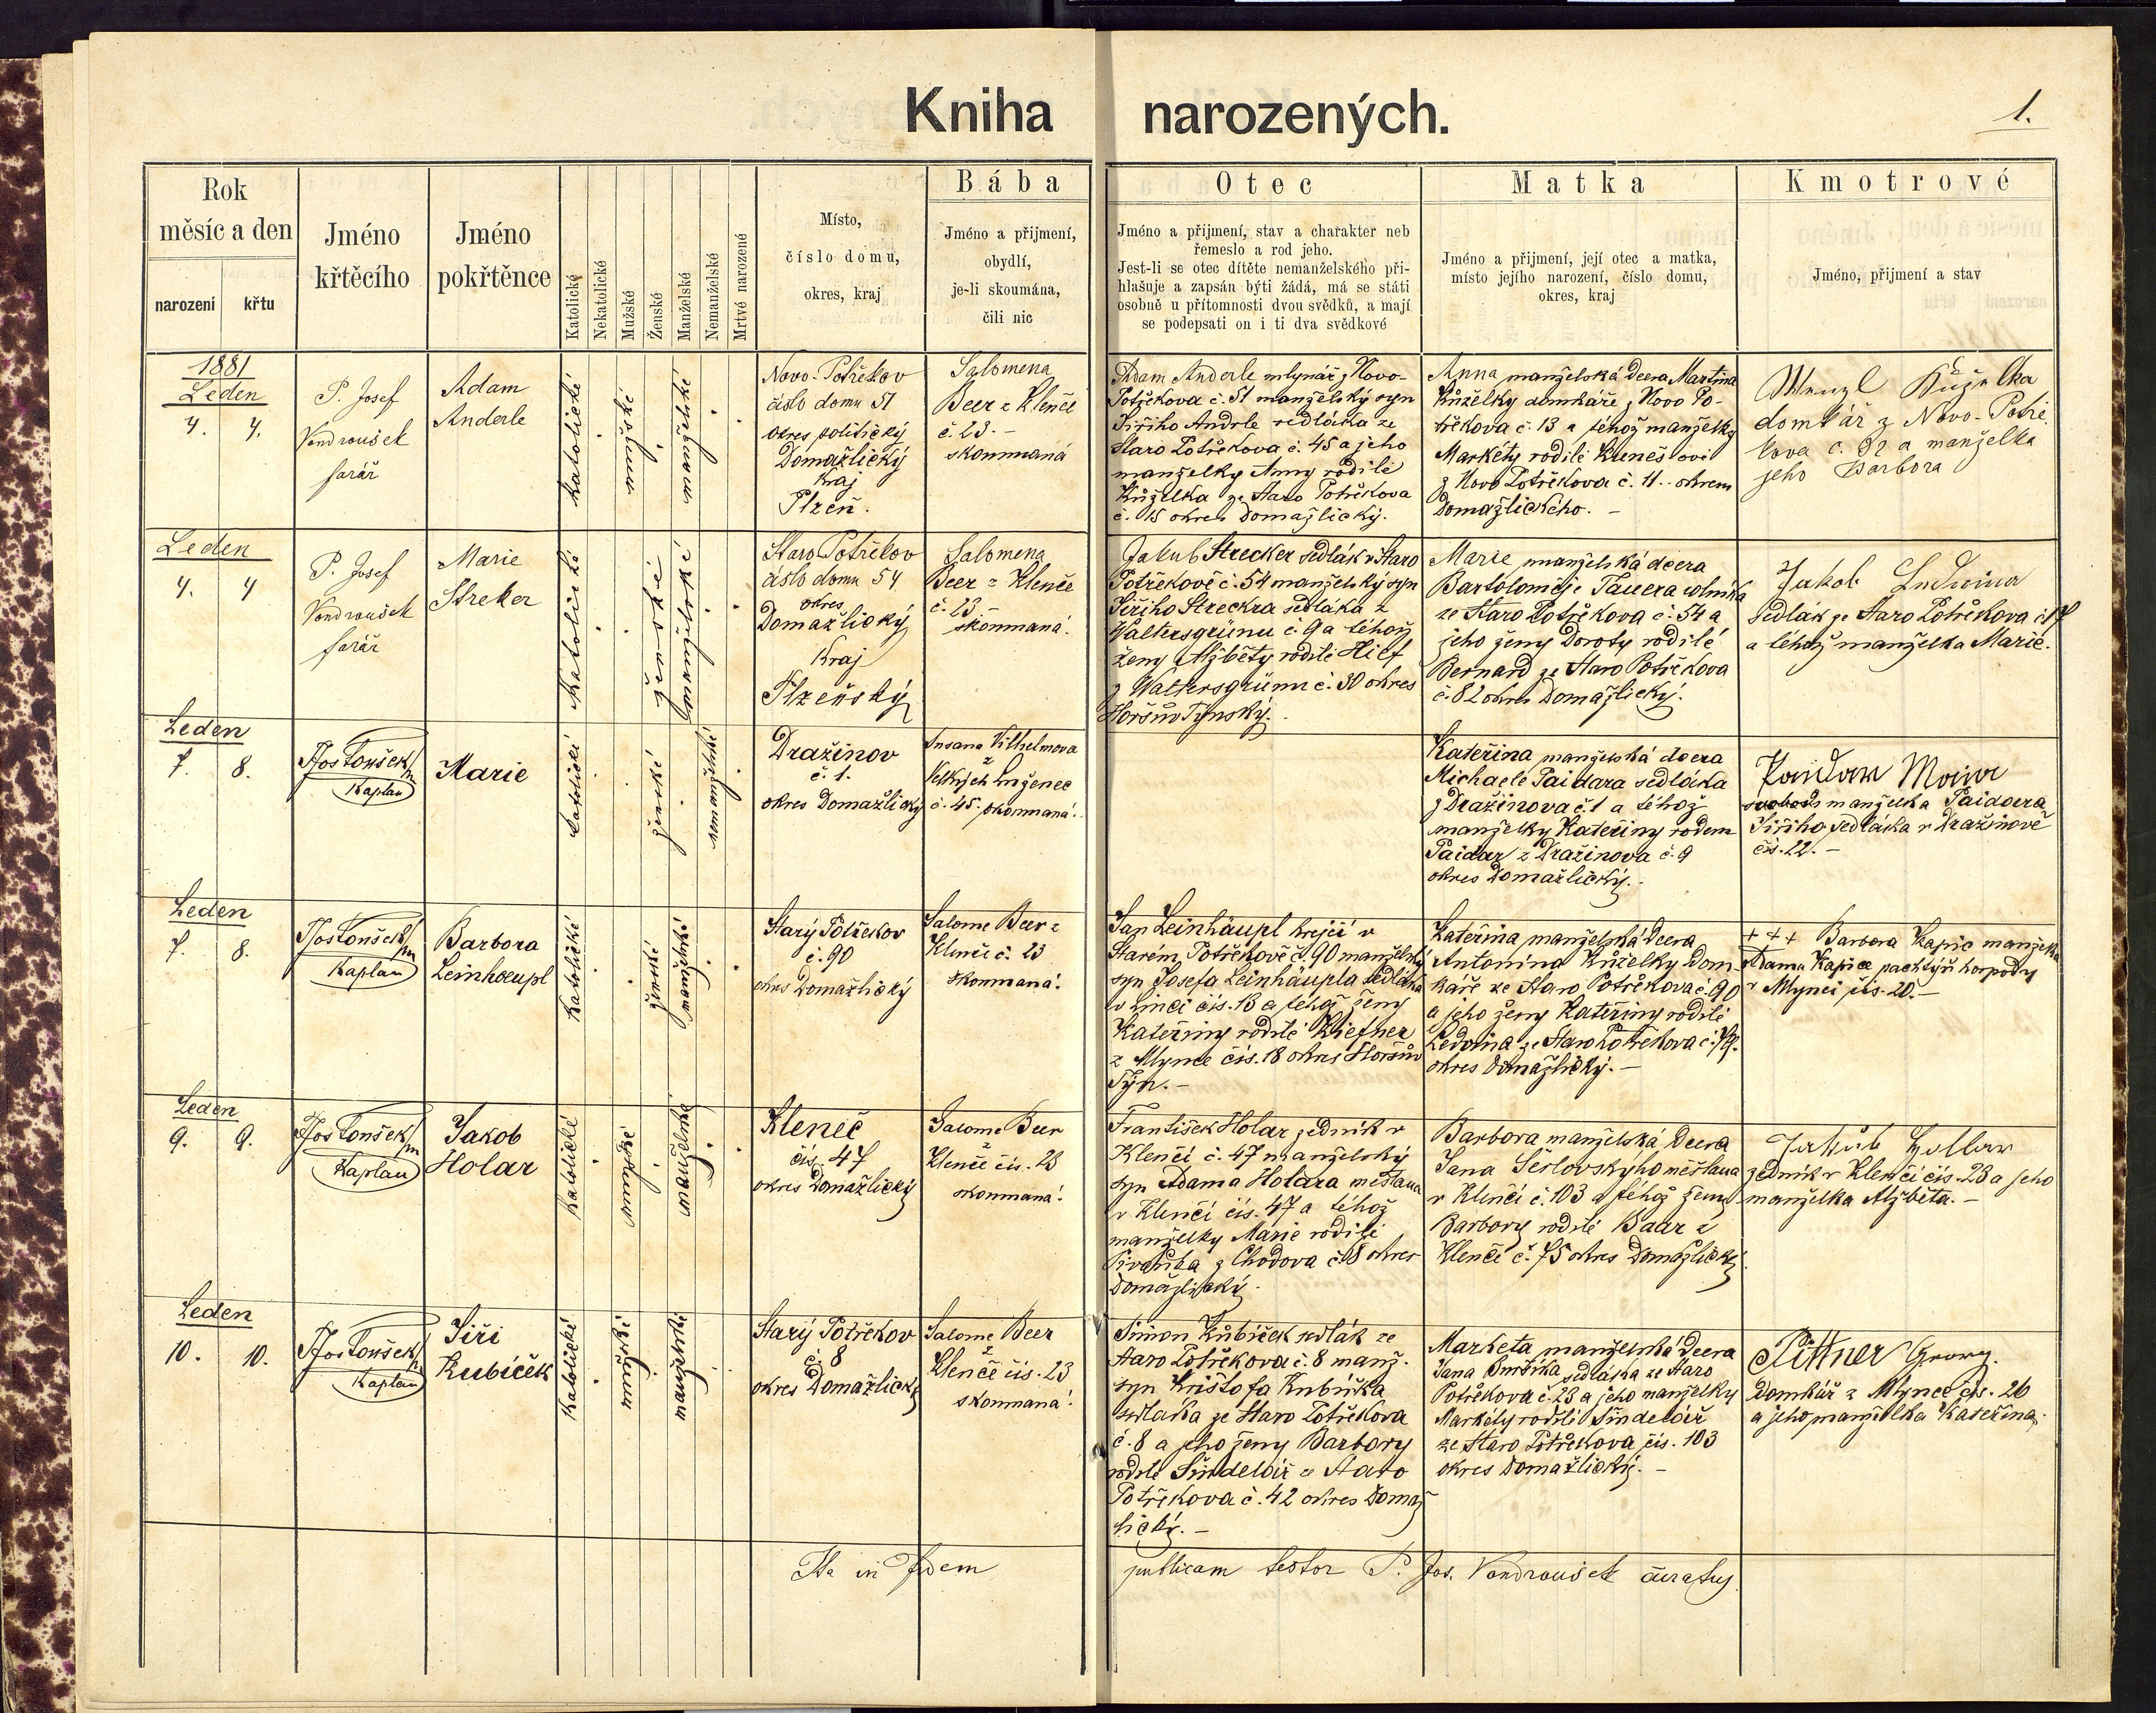 Kniha narozených.
1.
Rok
měsíc a den
narození
křtu
Jméno
křtěcího
Jméno
pokřtěnce
Katolický
Nekatolické
Mužské
Ženské
Manželské
Nemanželské
Mrtvé narozené
Místo,
číslo domu,
okres, kraj
Bába
Jméno a přijmení,
obydlí,
je-li skoumána,
čili nic
Otec
Jméno a přijmení, stav a charakter neb
řemeslo a rod jeho.
Jest-li se otec dítěte nemanželského při-
hlašuje a zapsán býti žádá, má se státi
osobně u přítomnosti dvou svědků, a mají
se podepsati on i ti dva svědkové
Matka
Jméno a přijmení, její otec a matka,
místo jejího narození, číslo domu,
okres, kraj
Kmotrové
Jméno, přijmení a stav
1881
Leden
4. 4.
P. Josef
Vondroušek
farář
Adam
Anderle
katolické
mužské
manželské
Novo-Potřekov
číslo domu 51
okres politický
Domažlický
Kraj
Plzeň.
Salomena
Beer z Klenče
č. 23.-
skoumaná
Adam Anderle mlynář z Novo-
Potřekova č. 51 manželský syn
Jiřího Andrle sedláka ze
Staro Potřekova č. 45 a jeho
manželky Anny rodilé
Kůželka ze Staro Potřekova
č. 15 okres Domažlický.
Anna manželská dcera Martina
Kůželky domkáře z Novo Po-
třekova č. 13 a téhož manželky
Markéty rodilé Kunešové
z Novo Potřekova č. 11. okresu
Domažlického. -
Wenzl Kůželka
domkář z Novo-Potře
kova č. 32 a manželka
jeho Barbora
Leden
4. 4
P. Josef
Vondroušek
farář
Marie
Streker
Katolické
ženské
manželské
Staro Potřekov
číslo domu 54
okres
Domažlický
Kraj
Plzeňský
Salomena
Beer z Klenče
č. 23 -
skoumaná.
Jakub Strecker sedlák v Staro
Potřekově č. 54 manželský syn
Jiřího Streckra sedláka z
Waltersgrünu č. 9 a téhož
ženy Alžběty rodilé Hilf
z Waltersgrünu č. 30 okres
Horšův Týnský.
Marie manželská dcera
Bartoloměje Tauera rolníka
ze Staro Potřekova č. 54 a
jeho ženy Doroty rodilé
Bernard ze Staro Potřekova
č. 82 okres Domažlický.
Jakob Ludwina
sedlák ze Staro Potřekova č. 17
a téhož manželka Marie.
Leden
7. 8.
P. Jos Toušek
Kaplan
Marie
katolické
ženské
nemanželské
Dražinov
č. 1.
okres Domažlický
Susana Vilhelmova
z
Velkých
č. 45. skoumaná.
Kateřina manželská dcera
Michaele Paidara sedláka
z Dražinova č 1 a téhož
manželky Kateřiny rodem
Paidar z Dražinova č. 9
okres Domažlický.
manželka Paidara
Jiřího sedláka v Dražinově
čís. 22. -
Leden
7. 8.
P. Jos Toušek
Kaplan
Barbora
Leinhaeupl
Katolické
ženské
manželské
Starý Potřekov
č. 90
okres Domažlický
Salome Beer z
Klenčí č. 23
skoumaná.
Jan Leinhäupl krejčí v
Starém Potřekově č. 90 manželský
syn Josefa Leinhäupla sedláka
čís. 13 a téhož ženy
Kateřiny rodilé Kiefner
z Mlynce čís. 18 okres Horšův
Týn. -
Kateřina manželská dcera
Antonína Kůželky dom-
káře ze Staro Potřekova č. 90
a jeho ženy Kateřiny rodilé
Ledvina ze Staro Potřekova č. 19.
okres domažlický. -
+++ Barbora Kapic manželka
Adama Kapice pachtýři hospody
v Mlynci čís. 20. -
Leden
9. 9.
P. Jos Toušek
Kaplan
Jakob
Holar
Katolické
mužské
manželské
Kleneč
čís. 47
okres Domažlický
Salome Beer
z
Klenče čís. 23
skoumaná.
František Holar zedník v
Klenčí č. 47 manželský
syn Adama Holara měšťana
v Klenčí čís. 47 a téhož
manželky Marie rodilé
z Chodova č. 18 okres
Domažlický.
Barbora manželská dcera
Jana měšťana
v Klenčí č. 103 a téhož ženy
Barbory rodilé Baar z
Klenčí č. 75 okres Domažlický.
Jakub Hollar
zedník v Klenčí čís. 23 a jeho
manželka Alžběta. -
Leden
10. 10.
P. Jos Toušek
Kaplan
Jiří
Kubíček
Katolické
mužské
manželské
Starý Potřekov
č. 8
okres Domažlický
Salome Beer
z
Klenče čís. 23
skoumaná.
Šimon Kubíček sedlák ze
Staro Potřekova č. 8 manž.
syn Krištofa Kubíčka
sedláka ze Staro Potřekova
č. 8 a jeho ženy Barbory
rodilé Šindelář z Staro
Potřekova č. 42 okres Domaž
lický. -
Marketa manželská dcera
Jana sedláka ze Staro
Potřekova č. 23 a jeho manželky
Markéty rodilé Šindelář
ze Staro Potřekova čís. 103
okres Domažlický. -
Pittner Georg.
domkář z Mlynce čís. 26
a jeho manželka Kateřina.
Ita in fidem publicam testor P. Jos. Vondroušek curatus